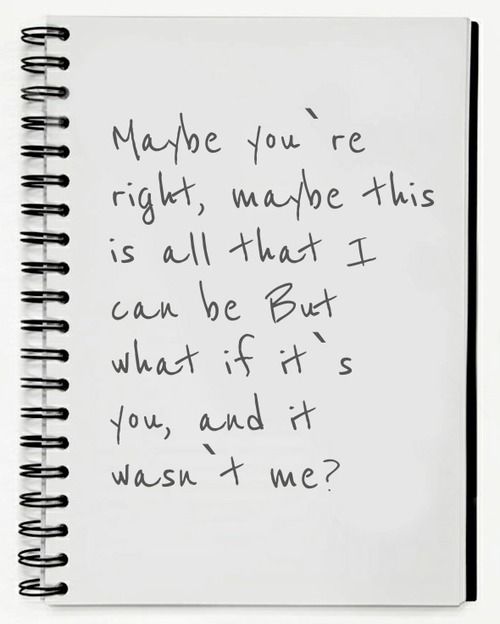 Maybe you`re
right, maybe this
is all that I
can be But
what if it`s
you, and it
wasn`t me?